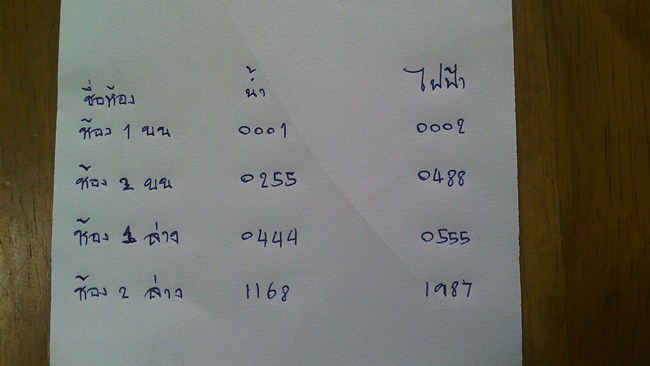 ชื่อห้อง น้ำ ไฟฟ้า
ห้อง 1 บน 0001 0002
ห้อง 2 บน 0255 0488
ห้อง 1 ล่าง 0444 0555
ห้อง 2 ล่าง 1168 1987